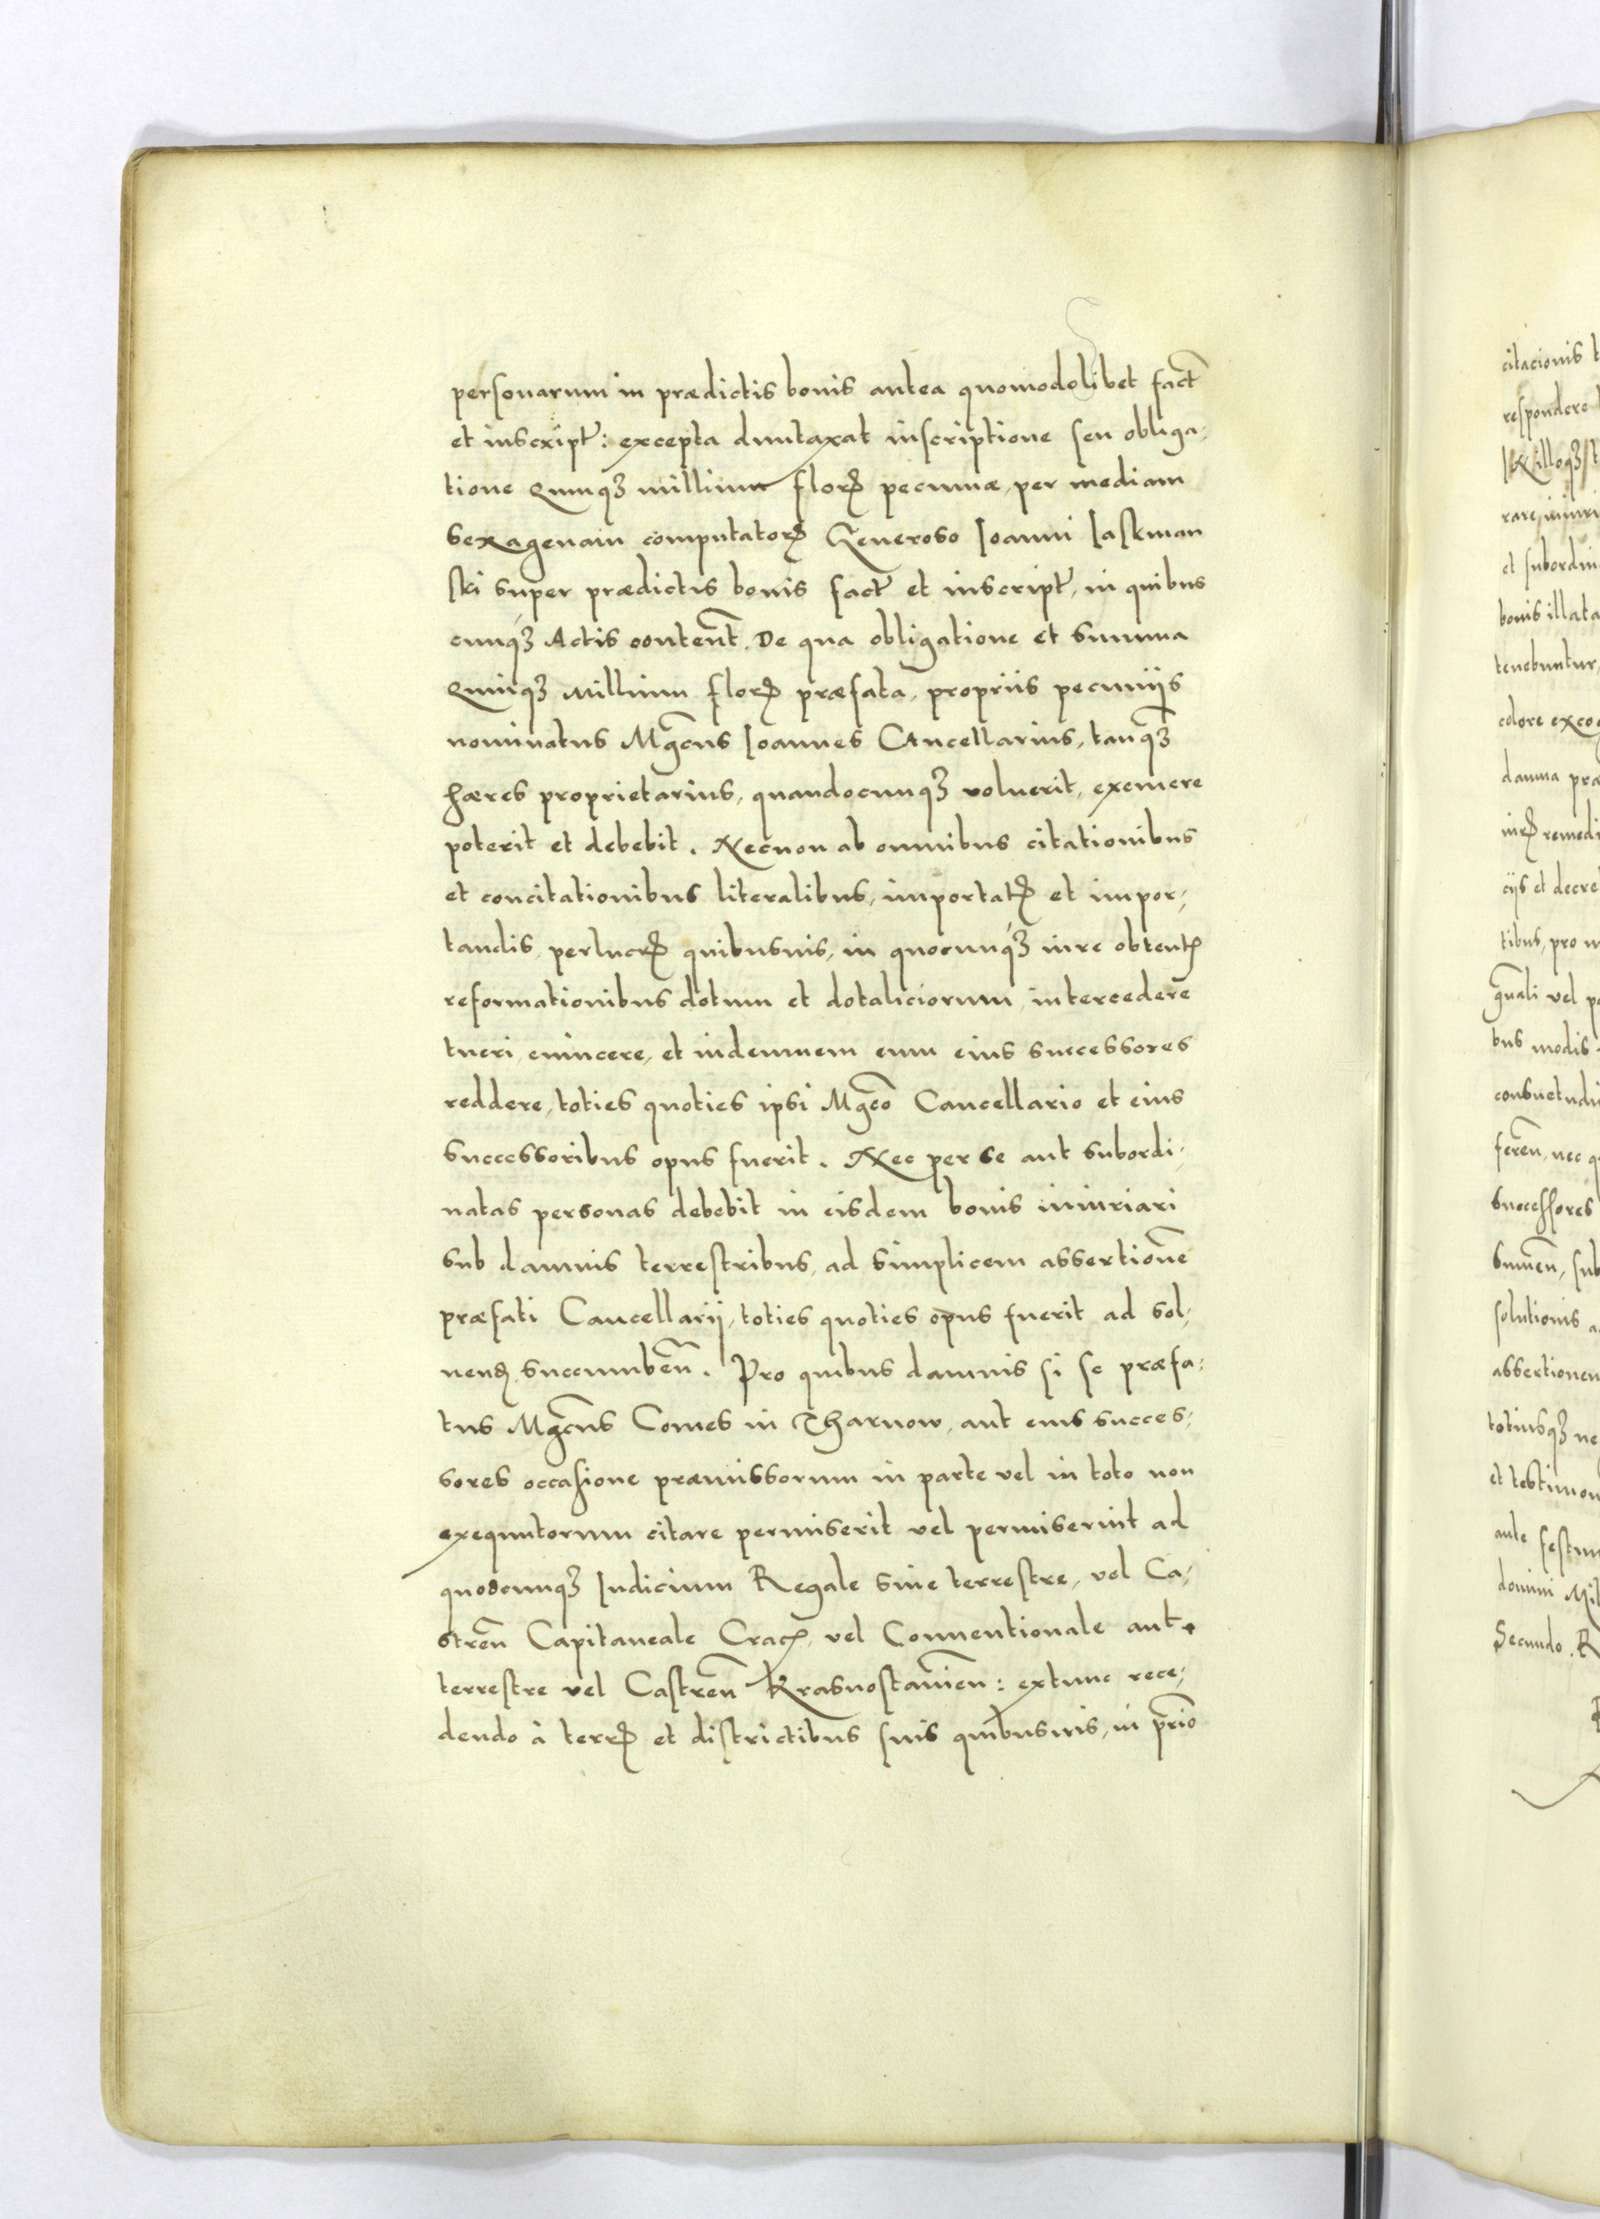 personarum in prædictis bonis antea quomodolibet fact̃
et inscript̃: excepta duntaxat inscriptione seu obliga-
tione Quinqꝫ millium florꝝ pecuniæ, per mediam
sexagenam computatorꝝ Generoso Ioanni Iaskman
ski super prædictis bonis fact̃ et inscript̃, in quibus
cunqꝫ Actis content̃. De qua obligatione et summa
Quinqꝫ Millium florꝝ præfata, propriis pecuniis
nominatus Mgcus Ioannes Cancellarius, tanqꝫ
hæres proprietarius, quandocunqꝫ voluerit, exemere
poterit et debebit. Necnon ab omnibus citationibus
et concitationibus literalibus, importatꝝ et impor-
tandis, perlucrꝝ quibusuis, in quocunqꝫ iure obtentꝝ
reformationibus dotum et dotaliciorum, intercedere
tueri, euincere, et indemnem eum eius successores
reddere, toties quoties ipsi Mgco Cancellario et eius
successoribus opus fuerit. Nec per se aut subordi-
natas personas debebit in eisdem bonis iniuriari
sub damnis terrestribus, ad simplicem assertione̅
præfati Cancellarij, toties quoties opus fuerit ad sol-
uenꝺ succumben̅. Pro quibus damnis si se præfa-
tus Mgcus Comes in Tharnow, aut eius succes-
sores occasione præmissorum in parte vel in toto non
exequutorum citare permiserit vel permiserint ad
quodcunqꝫ Iudicium Regale siue terrestre, vel Ca-
stren̅ Capitaneale Cracꝝ, vel Conuentionale aut
terrestre vel Castren̅ Krasnostauien̅: extunc rece-
dendo à terrꝝ et districtibus suis quibusuis, in p̅rio
citacionis
respondere
et subordin
bonis illata
tenebuntur
colore exco
damna præ
ciis et decre
tibus, pro
vel
bus modis
consuetudi
feren̅, nec
successores
solutionis
assertionem
totiusqꝫ ne
et testimon
ante festum
domini Mil
Secundo. R